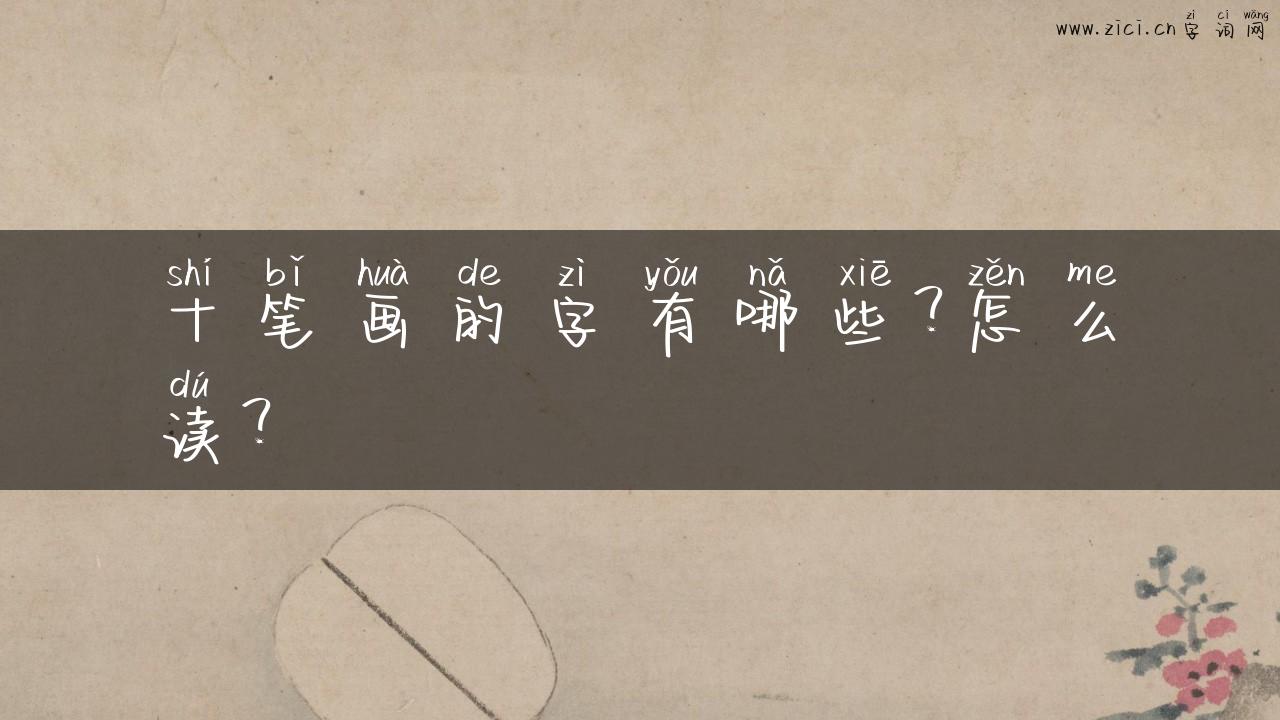 zì cí wǎng
www.zici.cn字词网
shí bǐ huà de zì yǒu nǎ xiē zěn me
十笔画的字有哪些？怎么
dú
读？